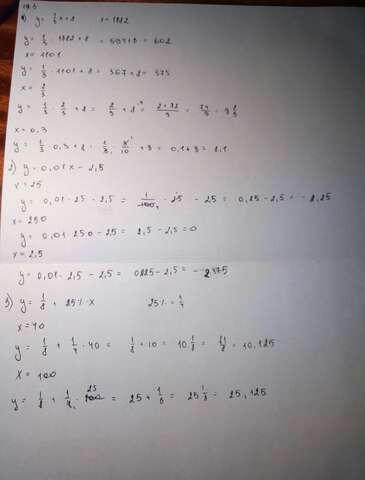 19.5
1) y = 1/3 x + 8 x = 1782
y = 1/3 · 1782 + 8 = 594 + 8 = 602
x = 1101
y = 1/3 · 1101 + 8 = 367 + 8 = 375
x = 2/3
y = 1/3 · 2/3 + 8 = 2/9 + 8 = (2+72)/9 = 74/9 = 8 2/9
x = 0,3
y = 1/3 · 0,3 + 8 = 1/3 · 3/10 + 8 = 0,1 + 8 = 8,1
2) y = 0,01x - 2,5
x = 25
y = 0,01 · 25 - 2,5 = 1/100 · 25 - 25 = 0,25 - 2,5 = - 2,25
x = 250
y = 0,01 · 250 - 2,5 = 2,5 - 2,5 = 0
x = 2,5
y = 0,01 · 2,5 - 2,5 = 0,025 - 2,5 = - 2,475
3) y = 1/8 + 25% · x 25% = 1/4
x = 40
y = 1/8 + 1/4 · 40 = 1/8 + 10 = 10 1/8 = = 10,125
x = 100
y = 1/8 + 1/4 · 100 25 = 25 + 1/8 = 25 1/8 = 25,125